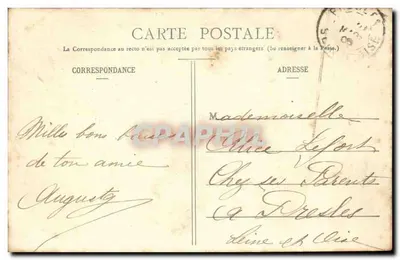 CARTE POSTALE
La Correspondance au recto n'est pas acceptée par tous les pays étrangers (Se renseigner à la Poste).
CORRESPONDANCE
ADRESSE
Mille bons baisers
de ton amie
Augusta
Mademoiselle
Alice Lefort
Chez ses Parents
à Presles
Seine et Oise